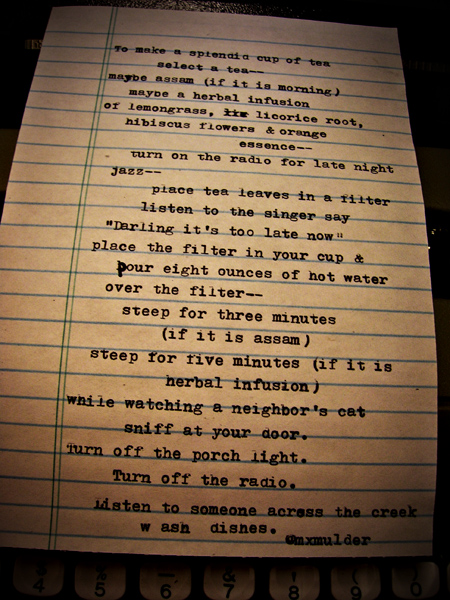 To make a splendid cup of tea
select a tea--
maybe assam (if it is morning)
maybe a herbal infusion
of lemongrass, licorice root,
hibiscus flowers & orange
essence--
turn on the radio for late night
jazz--
place tea leaves in a filter
listen to the singer say
"Darling it's too late now"
place the filter in your cup &
pour eight ounces of hot water
over the filter--
steep for three minutes
(if it is assam)
steep for five minutes (if it is
herbal infusion)
while watching a neighbor's cat
sniff at your door.
Turn off the porch light.
Turn off the radio.
Listen to someone across the creek
w ash dishes.
@mxmulder
4 5 6 7 8 9 0